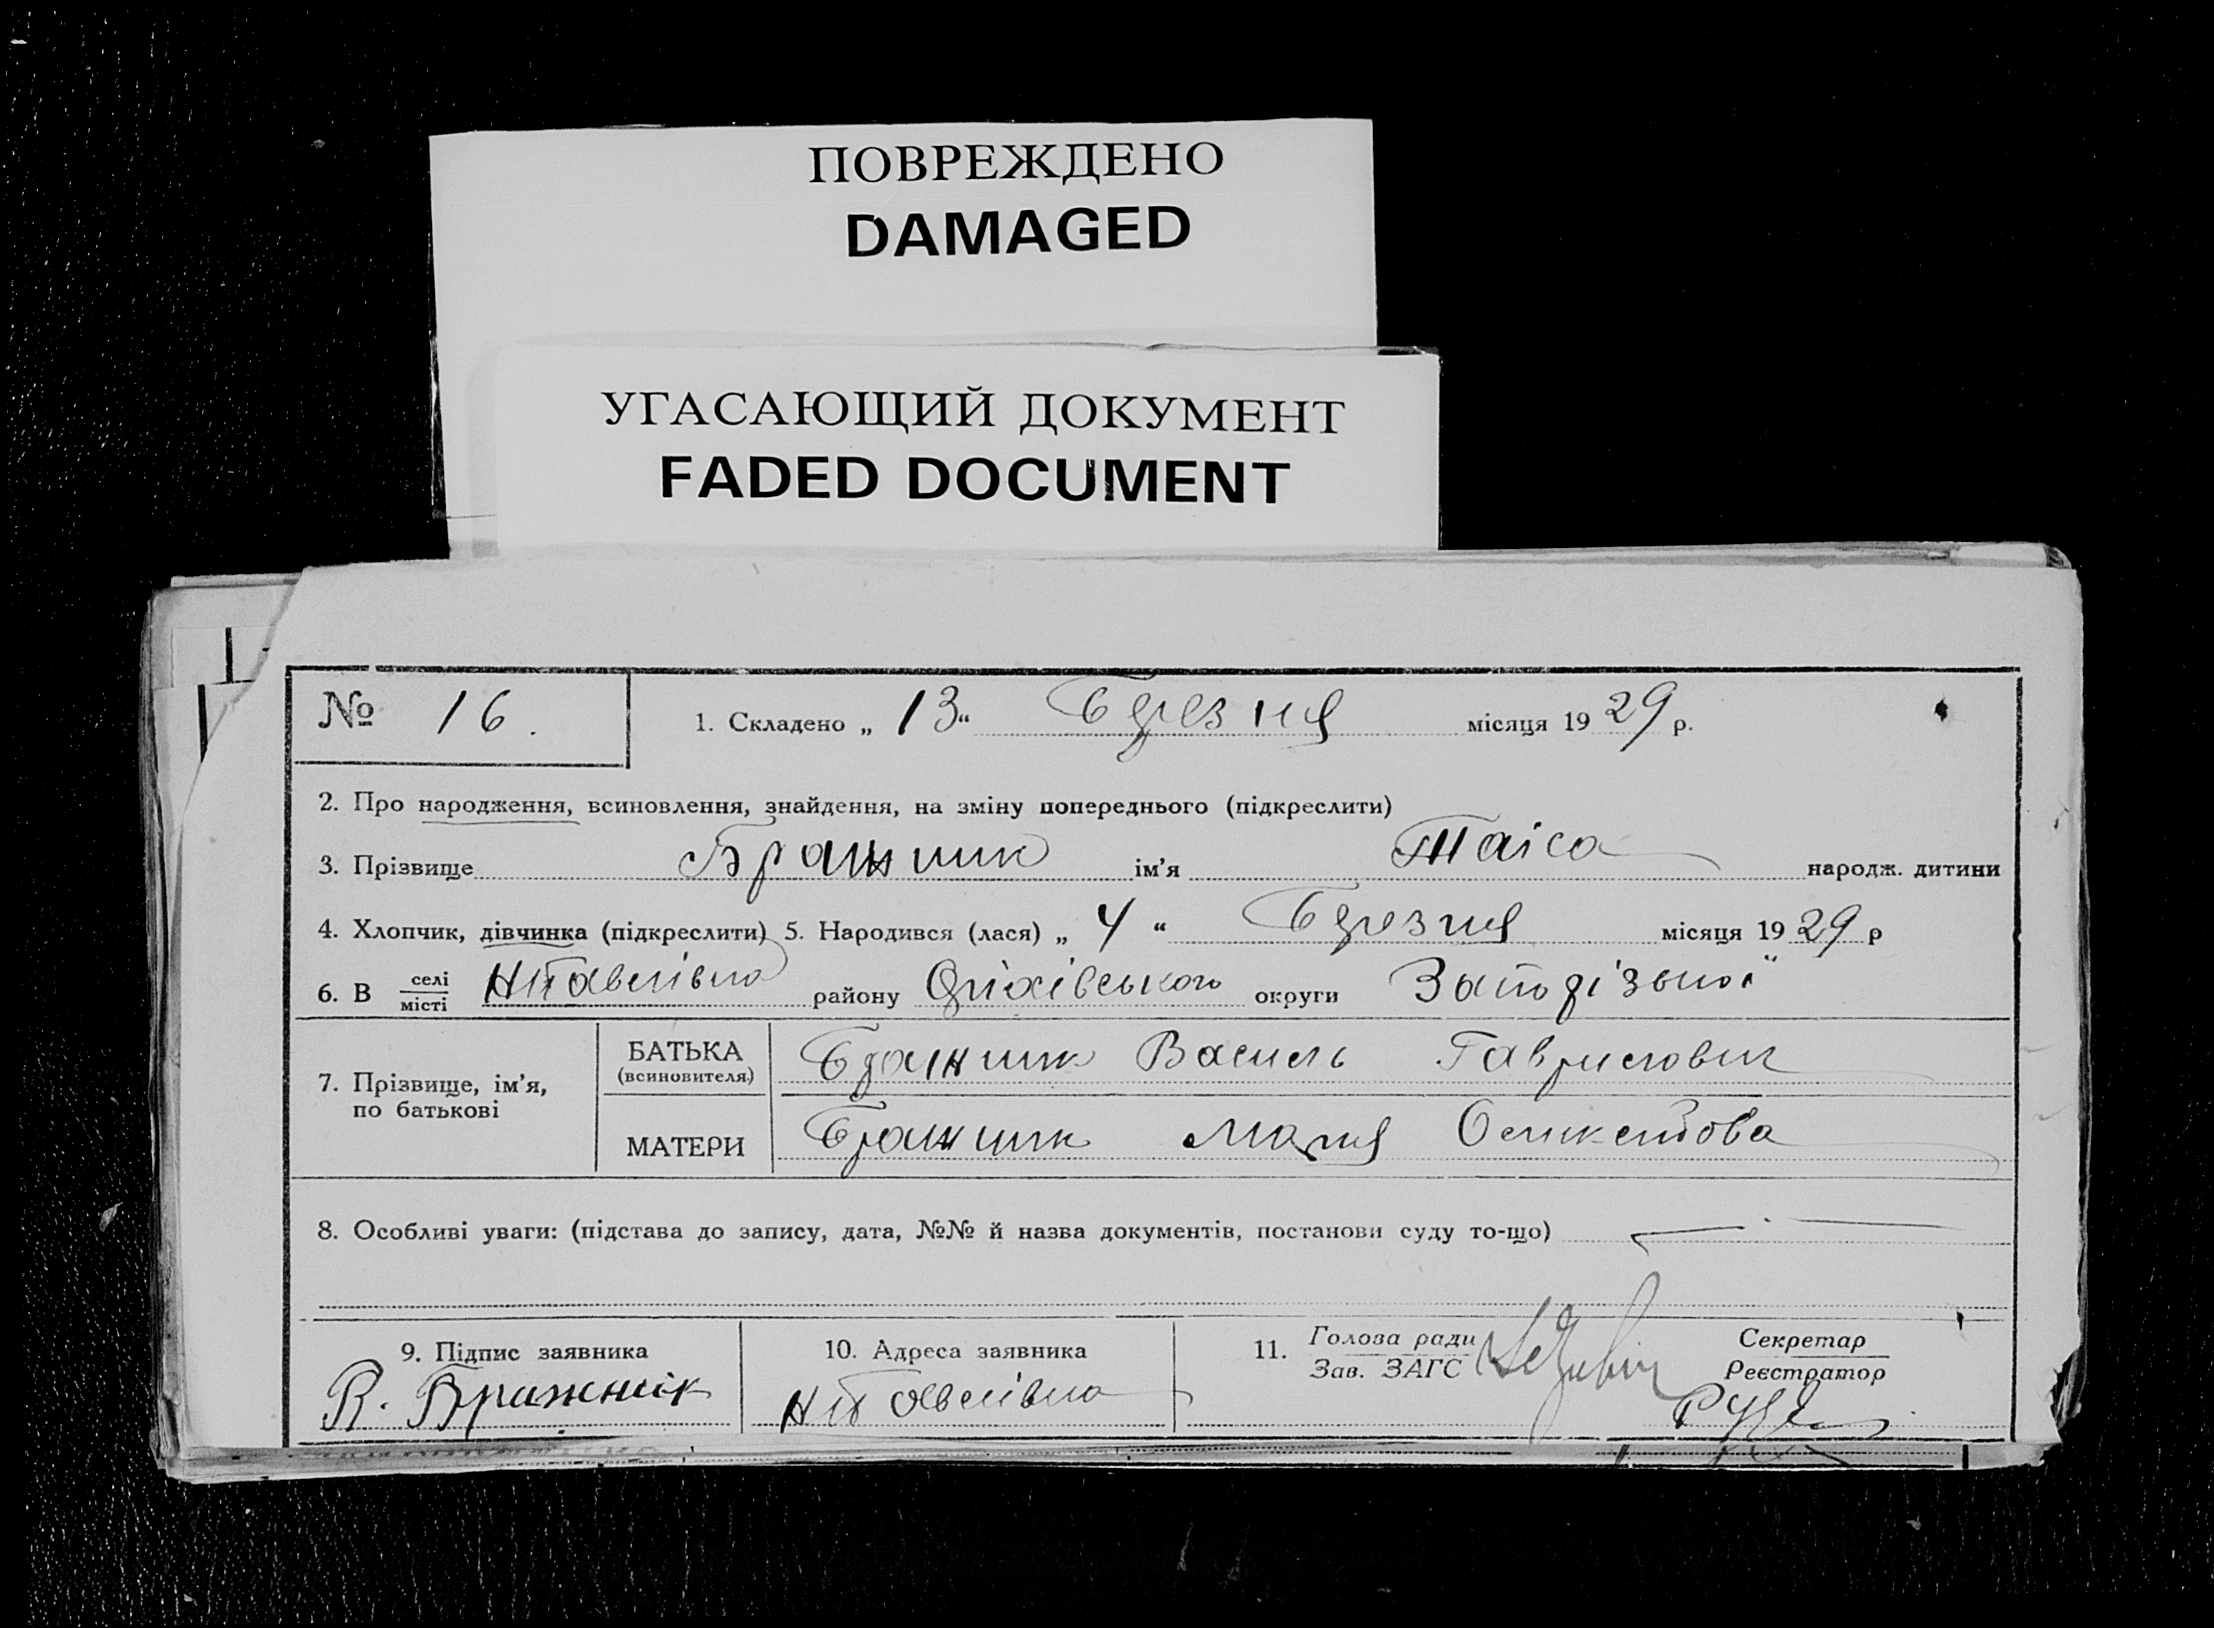 ПОВРЕЖДЕНО
DAMAGED
УГАСАЮЩИЙ ДОКУМЕНТ
FADED DOCUMENT
№ 16. 1. Складено „ 13 “ Березня місяця 1929 р.
2. Про народження, всиновлення, знайдення, на зміну попереднього (підкреслити)
3. Прізвище Бражник ім'я Таіса народж. дитини
4. Хлопчик, дівчинка (підкреслити) 5. Народився (лася) „ 4 “ Березня місяця 1929 р
6. В селі місті району Оріхівського округи Запорізької
7. Прізвище, ім'я, по батькові
БАТЬКА (всиновителя) Бражник Василь Гаврилович
МАТЕРИ Бражник Марія
8. Особливі уваги: (підстава до запису, дата, №№ й назва документів, постанови суду то-що)
9. Підпис заявника 10. Адреса заявника 11. Голова ради Секретар
Зав. ЗАГС Реєстратор
Бражник